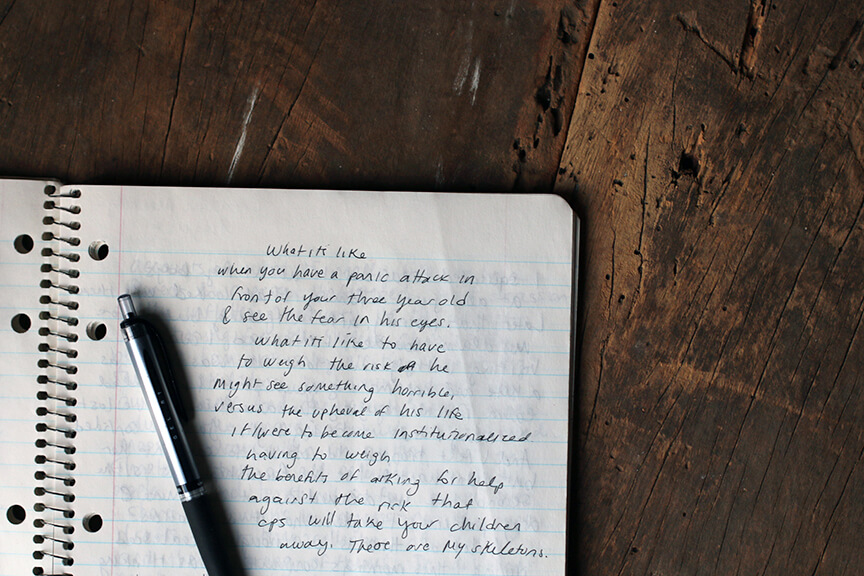 What it's like
when you have a panic attack in
front of your three year old
& see the fear in his eyes.
what it's like to have
to weigh the risk he
might see something horrible,
versus the upheval of his life
if I were to become institutionalized
having to weigh
the benefits of asking for help
against the risk that
cps will take your children
away. These are my skeletons.